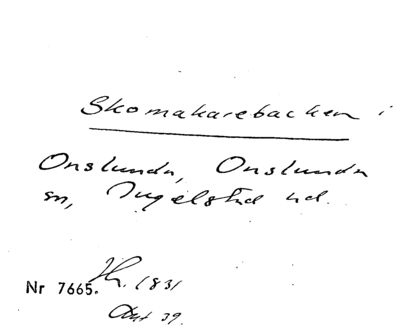 Skomakarebacken i
Onslunda, Onslunda
sn, Ingelstad hd.
Nr 7665. 1831
39.